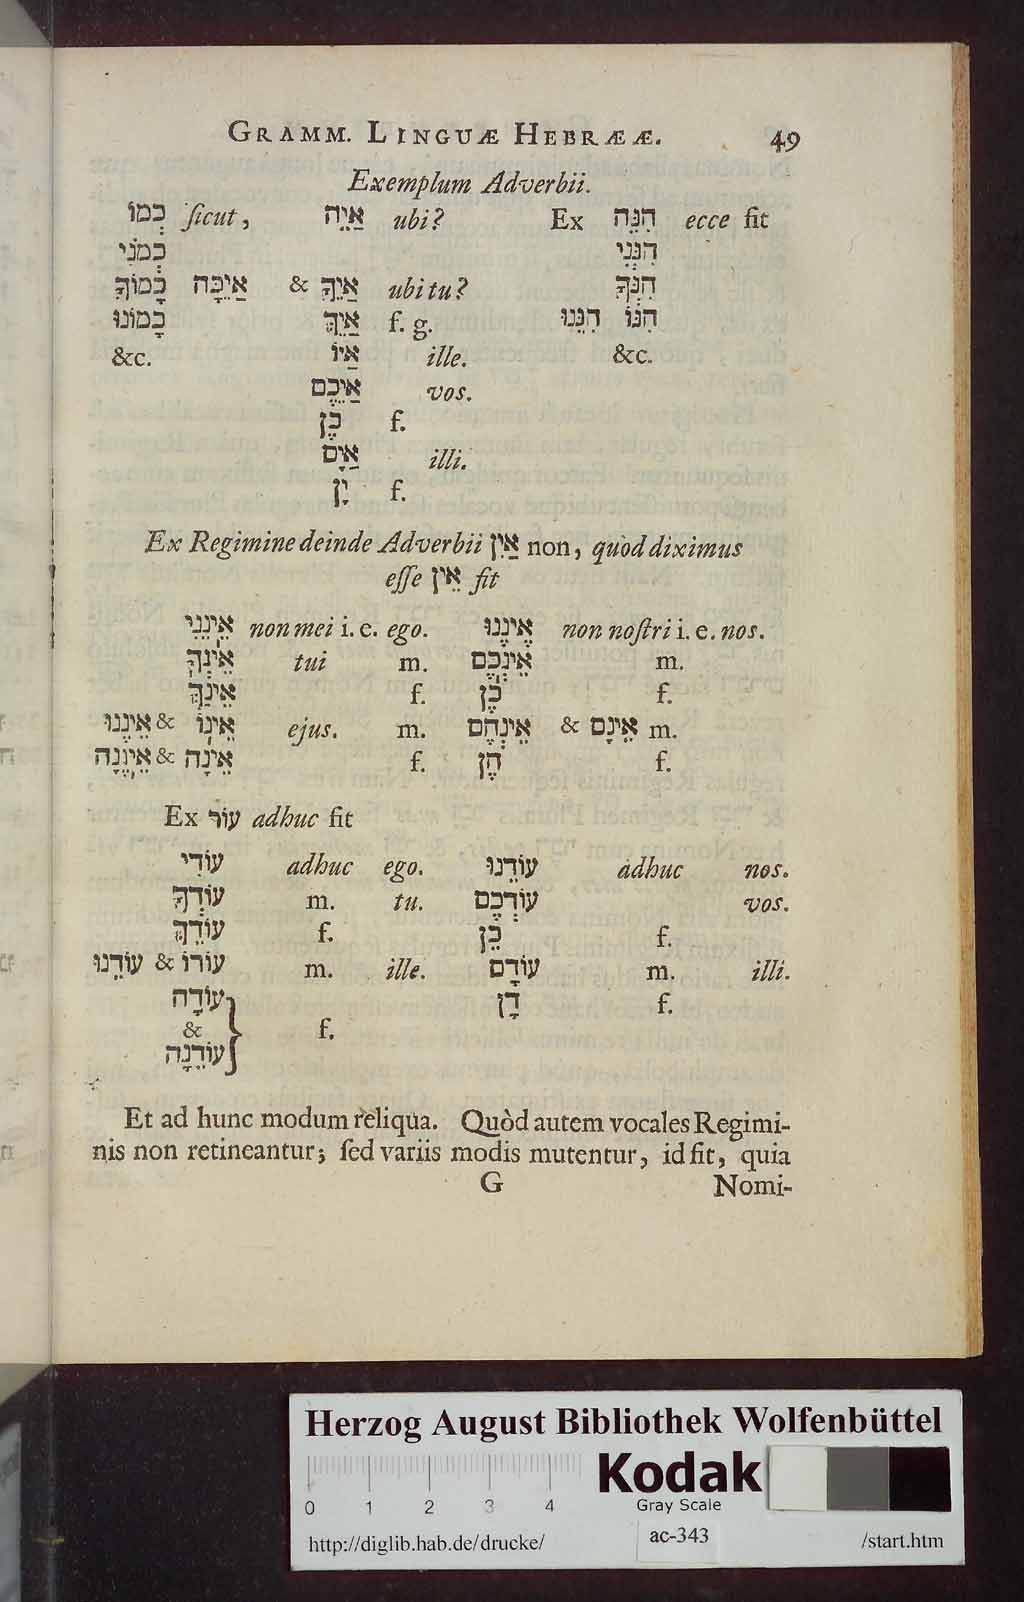 GRAMM. LINGUÆ HEBRÆÆ. 49
Exemplum Adverbii.
כְּמוֹ ſicut, אַיֵּה ubi? Ex הִנֵּה ecce fit
כְּמֹנִי הִנְּנִי
כָּמוֹךָ אַיֶּכָּה & אַיֵּךָ ubi tu? הִנְּךָ
כָּמוֹנוּ אַיֵּךְ f. g. הִנּוֹ הִנֵּנוּ
&c. אַיּוֹ ille. &c.
אַיְּכֶם vos.
כֶן f.
אַיָּם illi.
יָן f.
Ex Regimine deinde Adverbii אַיִן non, quòd diximus
eſſe אֵין fit
אֵינֵנִי non mei i. e. ego. אֵינֶנּוּ non noſtri i. e. nos.
אֵינְךָ tui m. אֵינְכֶם m.
אֵינֵךְ f. כֶן f.
אֵינֶנּוּ & אֵינוֹ ejus. m. אֵינְהֶם & אֵינָם m.
אֵינֶנָּה & אֵינָהּ f. הֶן f.
Ex עוֹר adhuc fit
עוֹדִי adhuc ego. עוֹדֵנוּ adhuc nos.
עוֹדְךָ m. tu. עוֹדְכֶם vos.
עוֹדֵךְ f. כֶן f.
עוֹדֵנוּ & עוֹרוֹ m. ille. עוֹדָם m. illi.
עוֹדָהּ דָן f.
& f.
עוֹדֶנָּה
Et ad hunc modum reliqua. Quòd autem vocales Regimi-
nis non retineantur; ſed variis modis mutentur, id fit, quia
G Nomi-
Herzog August Bibliothek Wolfenbüttel
Kodak
0 1 2 3 4 Gray Scale
http://diglib.hab.de/drucke/ ac-343 /start.htm